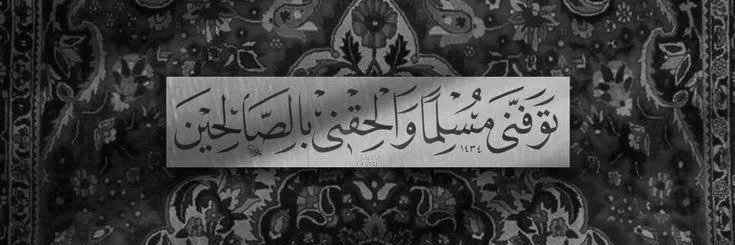 تَوَفَّنِي مُسْلِمًا وَأَلْحِقْنِي بِالصَّالِحِينَ
١٤٣٤